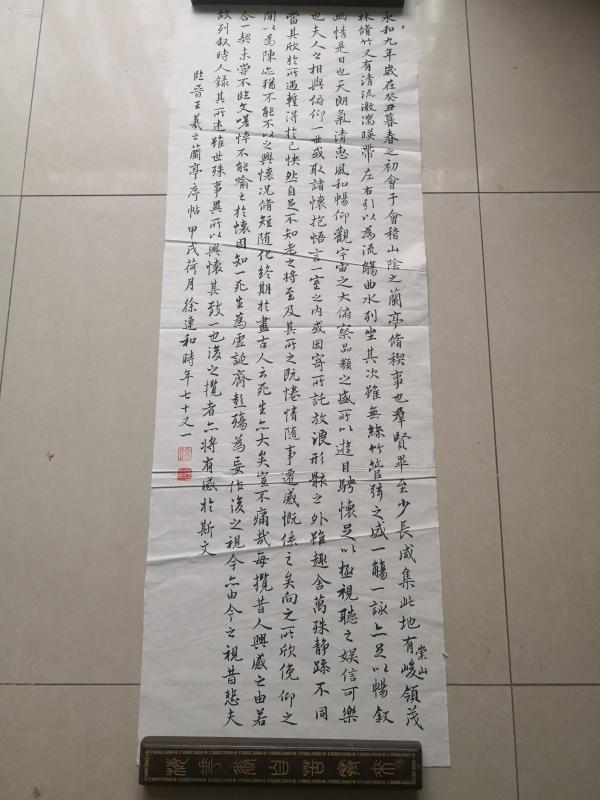 永和九年歲在癸丑暮春之初會于會稽山陰之蘭亭脩稧事也羣賢畢至少長咸集此地有峻領茂
崇山
林脩竹又有清流激湍暎帶左右引以為流觴曲水列坐其次雖無絲竹管弦之盛一觴一詠亦足以暢叙
幽情是日也天朗氣清惠風和暢仰觀宇宙之大俯察品類之盛所以遊目騁懷足以極視聽之娛信可樂
也夫人之相與俯仰一世或取諸懷抱悟言一室之內或因寄所託放浪形骸之外雖趣舍萬殊靜躁不同
當其欣於所遇蹔得於己怏然自足不知老之將至及其所之既惓情隨事遷感慨係之矣向之所欣俛仰之
閒以為陳迹猶不能不以之興懷況脩短隨化終期於盡古人云死生亦大矣豈不痛哉每攬昔人興感之由若
合一契未嘗不臨文嗟悼不能喻之於懷固知一死生為虛誕齊彭殤為妄作後之視今亦由今之視昔悲夫
故列叙時人錄其所述雖世殊事異所以興懷其致一也後之攬者亦將有感於斯文
臨晉王羲之蘭亭序帖 甲戌荷月徐連和時年七十又一
梅花香自苦寒來